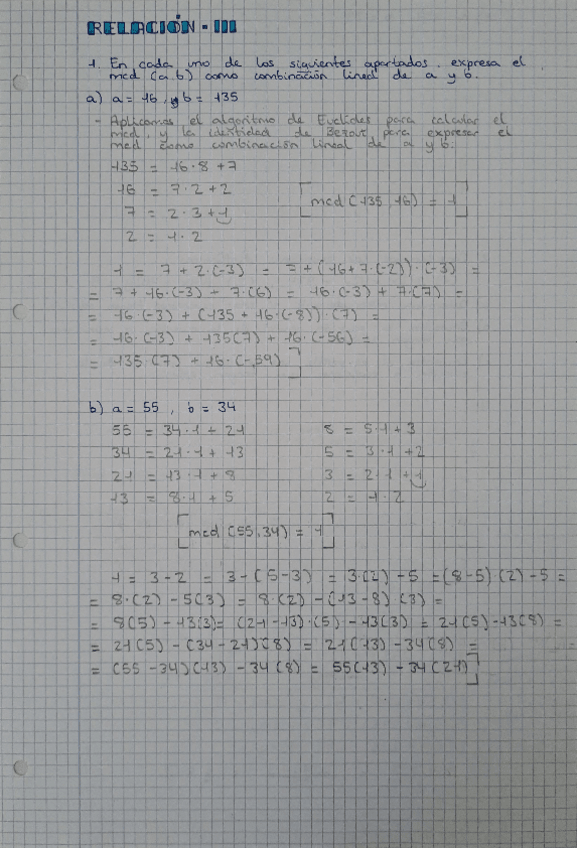 RELACIÓN - III
1. En cada uno de los siguientes apartados, expresa el
mcd (a,b) como combinación lineal de a y b.
a) a = 16, y b = 135
- Aplicamos el algoritmo de Euclides para calcular el
mcd, y la identidad de Bezout para expresar el
mcd como combinación lineal de a y b.
135 = 16·8 + 7
16 = 7·2 + 2
7 = 2·3 + 1
2 = 1·2
[mcd (135, 16) = 1]
1 = 7 + 2·(-3) = 7 + (16 + 7·(-2))·(-3) =
= 7 + 16·(-3) + 7·(6) = 16·(-3) + 7·(7) =
= 16·(-3) + (135 + 16·(-8))·(7) =
= 16·(-3) + 135(7) + 16·(-56) =
= 135·(7) + 16·(-59)]
b) a = 55, b = 34
55 = 34·1 + 21
34 = 21·1 + 13
21 = 13·1 + 8
13 = 8·1 + 5
8 = 5·1 + 3
5 = 3·1 + 2
3 = 2·1 + 1
2 = 1·2
[mcd (55,34) = 1]
1 = 3 - 2 = 3 - (5-3) = 3·(2) - 5 = (8-5)·(2) - 5 =
= 8·(2) - 5(3) = 8·(2) - (13-8)·(3) =
= 8(5) - 13(3) = (21-13)·(5) - 13(3) = 21(5) - 13(8) =
= 21(5) - (34-21)(8) = 21(13) - 34(8) =
= (55-34)(13) - 34(8) = 55(13) - 34(21)]